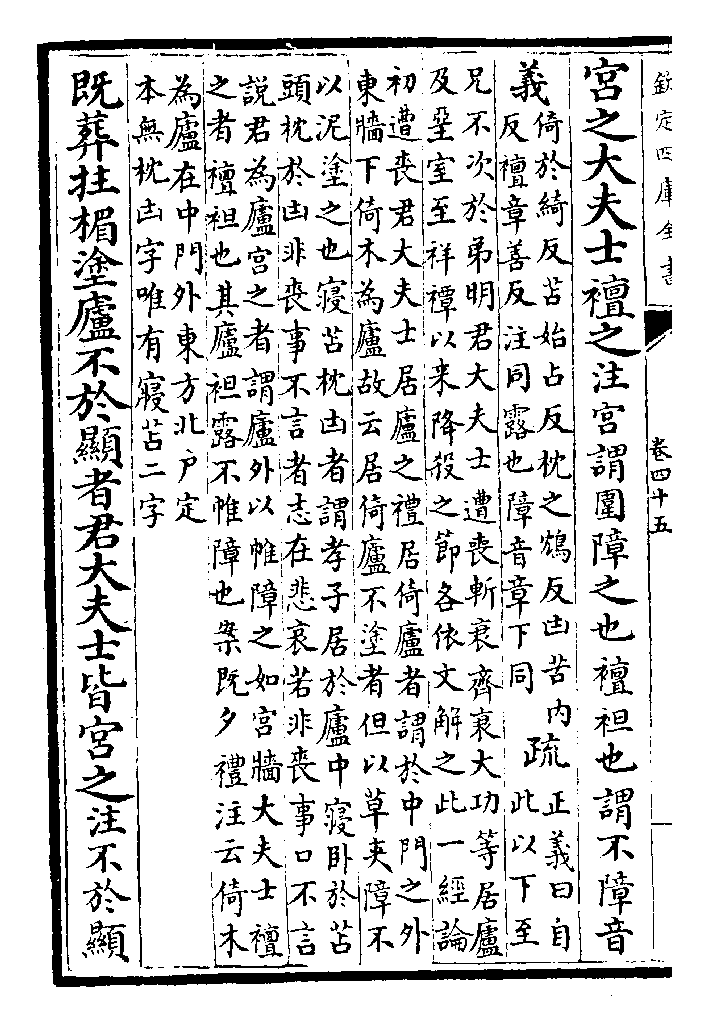 欽定四庫全書
卷四十五
宫之大夫士襢之注宫謂圍障之也襢袒也謂不障音
義
倚於綺反苫始占反枕之鴆反凷苦内
反襢章善反注同露也障音章下同
疏
正義曰自
此以下至
兄不次於弟明君大夫士遭喪斬衰齊衰大功等居廬
及堊室至祥禫以來降殺之節各依文解之此一經論
初遭喪君大夫士居廬之禮居倚廬者謂於中門之外
東牆下倚木為廬故云居倚廬不塗者但以草夾障不
以泥塗之也寢苫枕凷者謂孝子居於廬中寢卧於苫
頭枕於凷非喪事不言者志在悲哀若非喪事口不言
說君為廬宫之者謂廬外以帷障之如宫牆大夫士襢
之者襢袒也其廬袒露不帷障也案既夕禮注云倚木
為廬在中門外東方北户定
本無枕凷字唯有寢苫二字
既葬拄楣塗廬不於顯者君大夫士皆宫之注不於顯